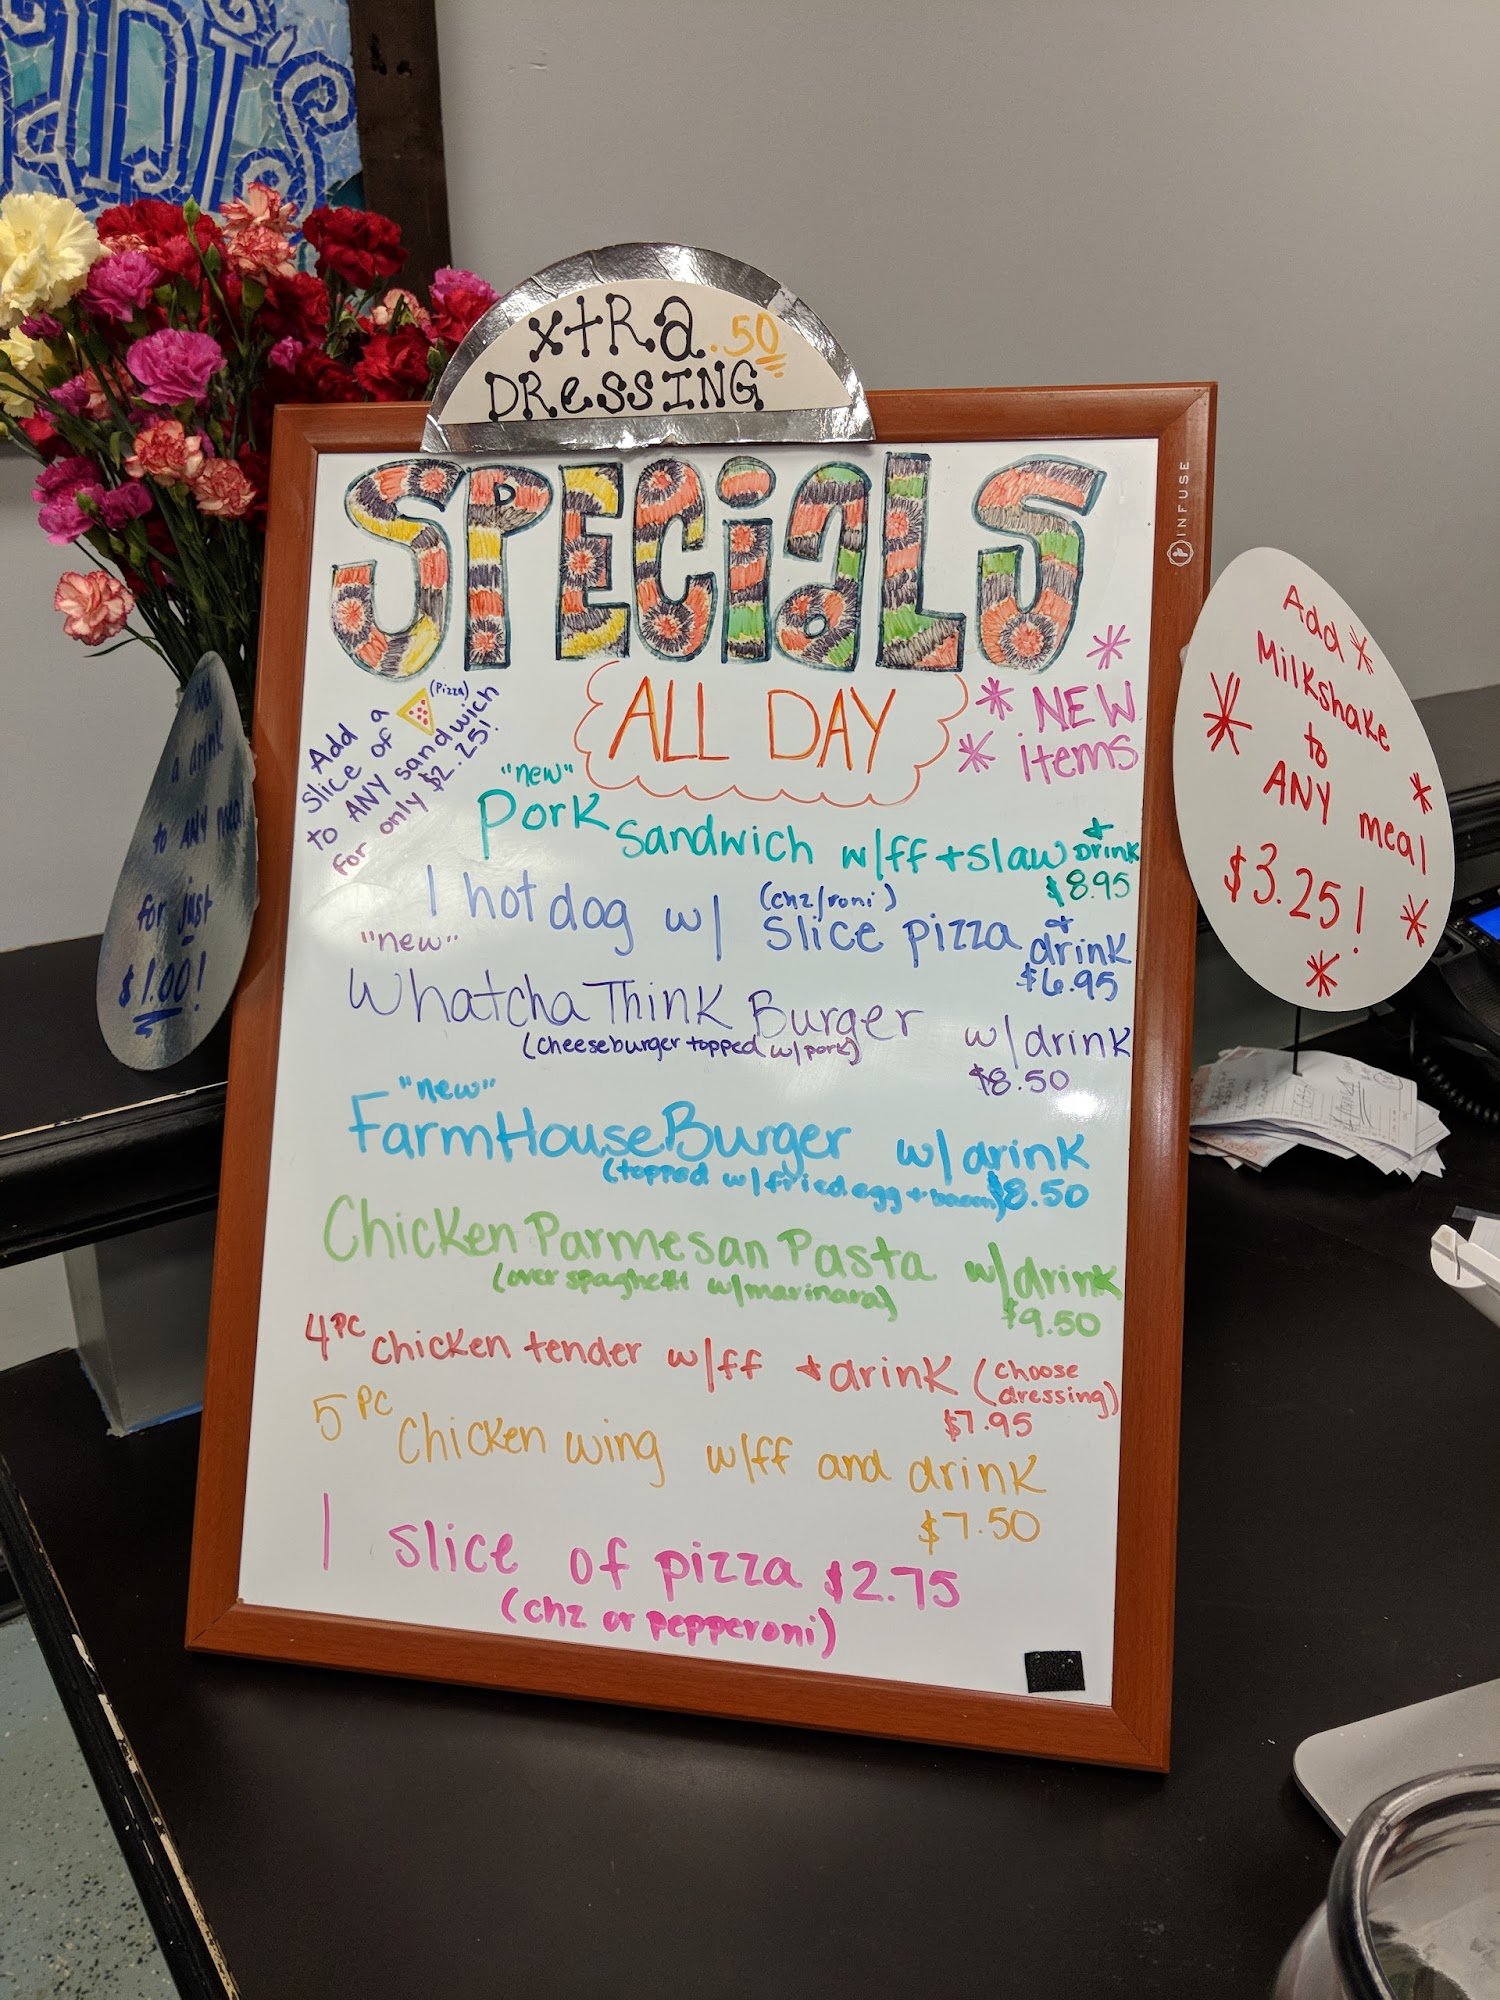 ADI'S
xtRa .50
DRessING
SPECiaLS
INFUSE
ALL DAY
* NEW
* items *
Add
slice of a (Pizza)
to ANY sandwich
for only $2.25!
"new"
Pork sandwich w/ff + slaw + Drink
$8.95
1 hot dog w/ (chz/roni) slice pizza + drink
$6.95
"new"
Whatcha Think Burger w/drink
(cheeseburger topped w/pork)
$8.50
"new"
FarmHouse Burger w/drink
(topped w/fried egg + bacon) $8.50
Chicken Parmesan Pasta w/drink
(over spaghetti w/marinara)
$9.50
4 PC chicken tender w/ff + drink (choose dressing)
$7.95
5 PC Chicken wing w/ff and drink
$7.50
1 slice of pizza $2.75
(chz or pepperoni)
Add
Milkshake
to
ANY meal
$3.25!
a drink
to ANY meal
for just
$1.00!